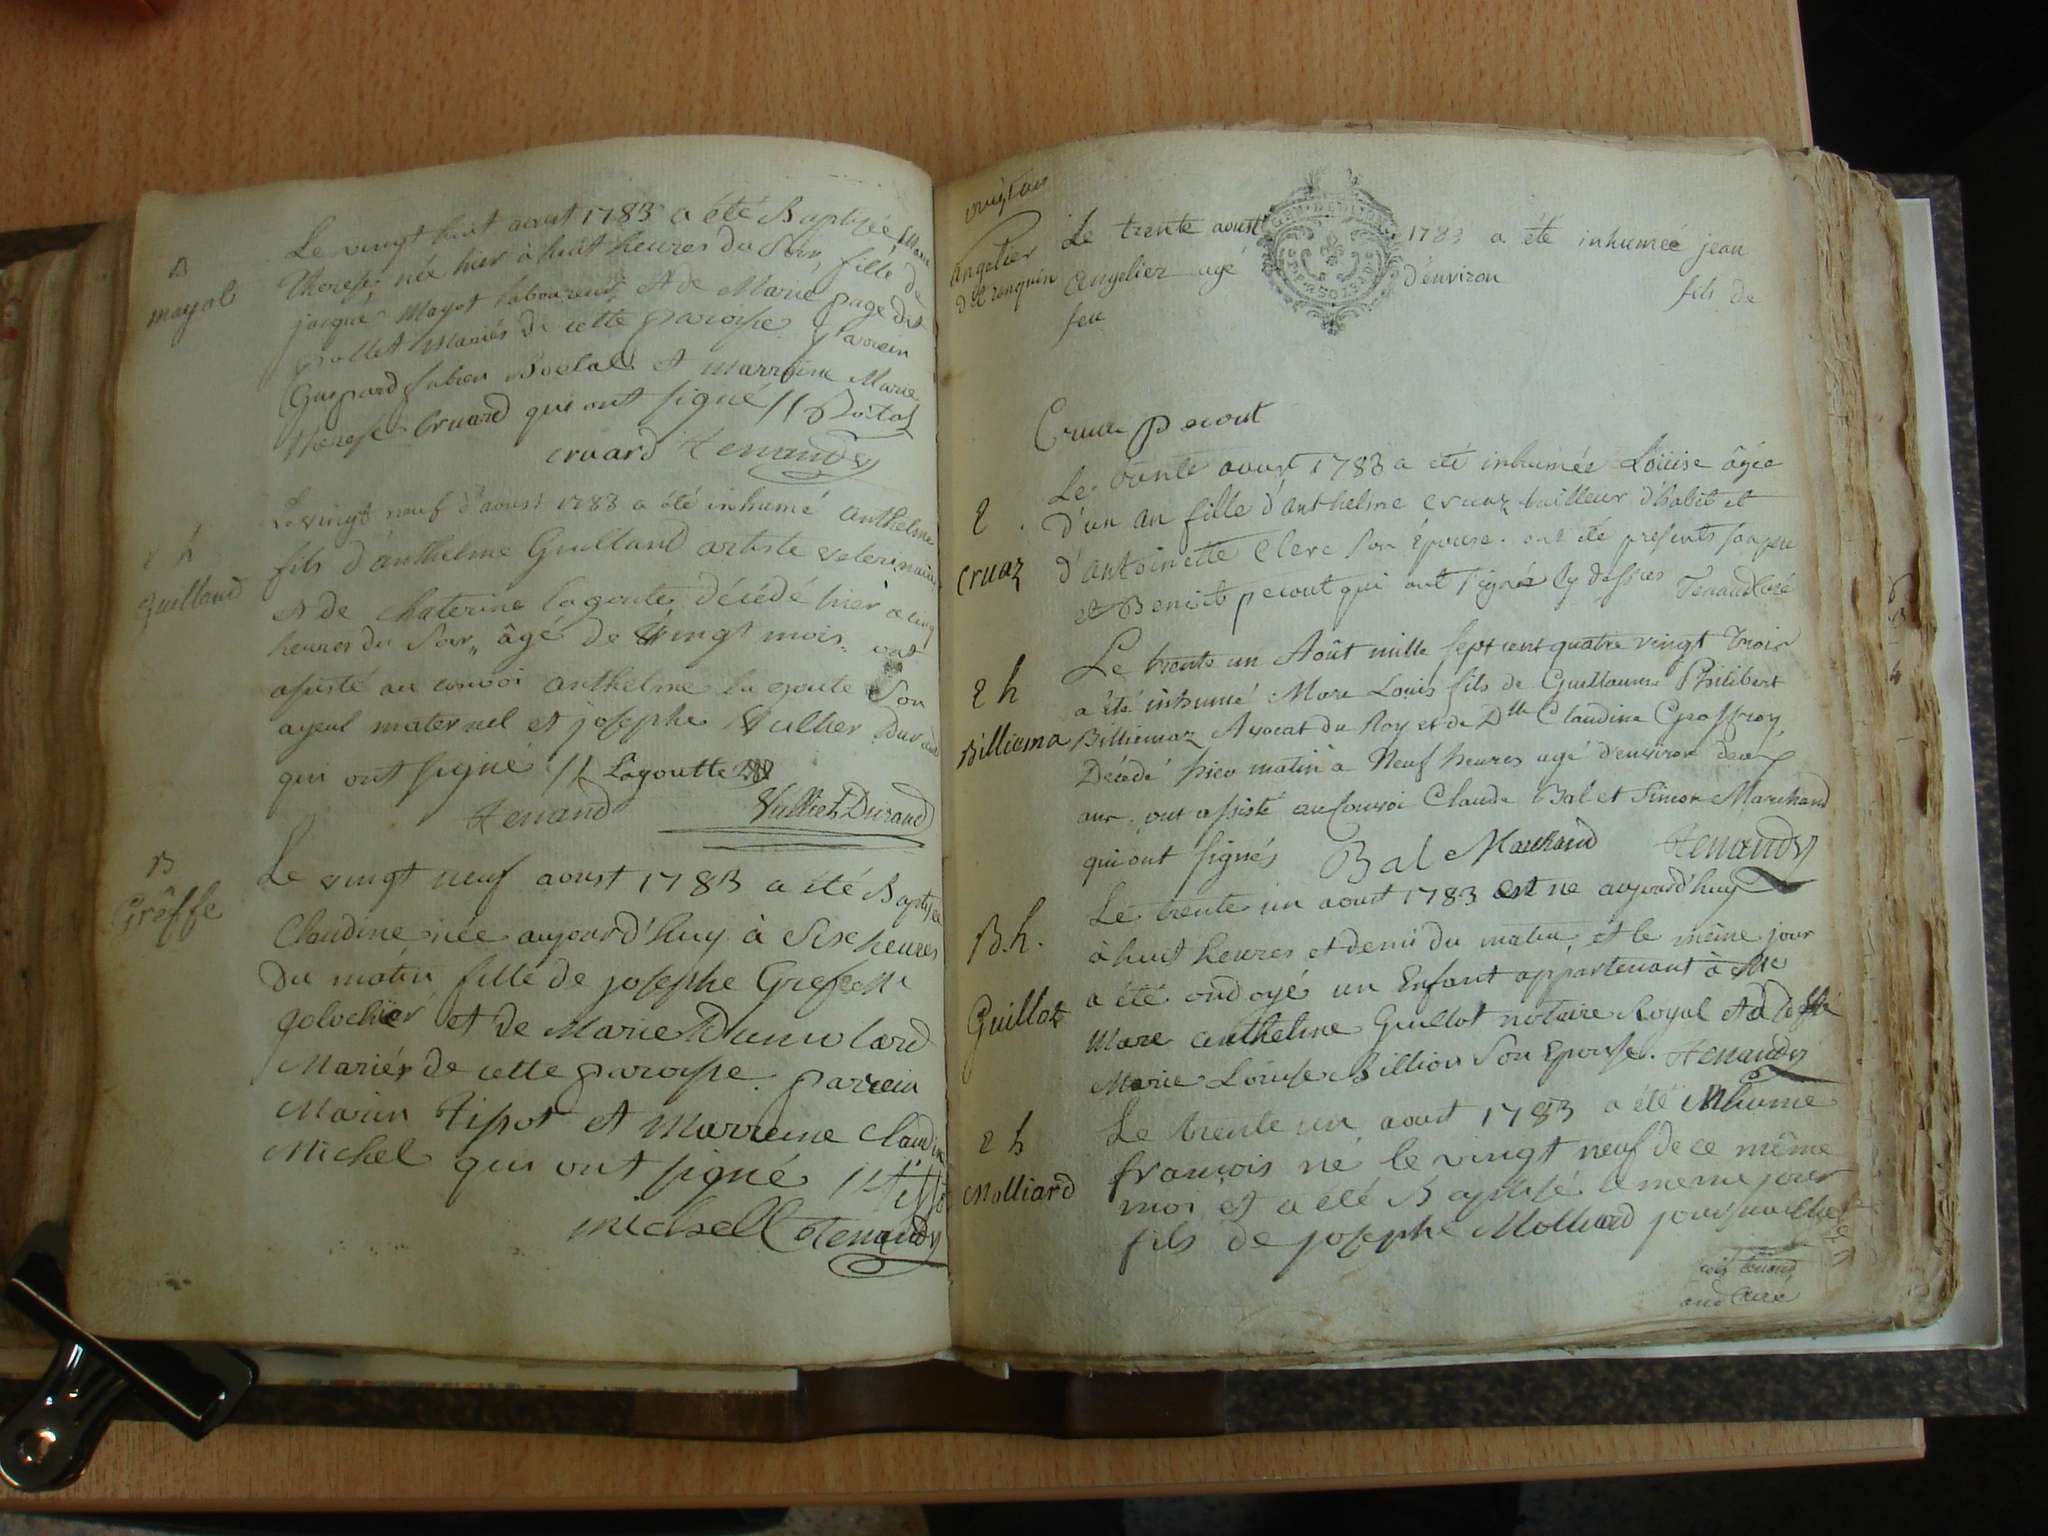 B
mayot
Le vingt huit aout 1783 a été Baptisée Marie
therese née hier à huit heures du Soir, fille de
jacque Mayot laboureur, et de Marie page dit
pollet Mariés de cette paroisse parrein
Gaspard fabien Boetas et marraine Marie
therese Cruard qui ont signé // Boitas
cruard Tenand
h
Guilland
Le vingt neuf d'aoust 1783 a été inhumé anthelme
fils d'anthelme Guilland artiste veterinaire
et de Chaterine lagoute, décédé hier a cinq
heures du Soir, âgé de vingt mois, ont
assisté au convoi anthelme la goute Son
ayeul maternel et josephe Vullier Durand
qui ont signé // Lagoutte
Tenand Vulliet Durand
B
Grêffe
Le vingt neuf aoust 1783 a été Baptisée
Claudine née aujourd'huy à Six heures
du matin fille de josephe Greffe
galochier et de Marie Dumolard
Mariés de cette paroisse. parrein
Marin Tissot et Marreine Claudine
Michel qui ont signé //
michel Tenand
Angelier
Le trente aoust 1783 a été inhumée jean
Angelier agé d'environ fils de
feu
Cruaz pecout
cruaz
Le trente aoust 1783 a été inhumée Loüise âgée
d'un an fille d'anthelme Cruaz tailleur d'habit et
d'antoinette Clerc Son Épouse. ont été presents son pere
et Benoit pecout qui ont signés cy dessus Tenand curé
h
Billiema
Le trente un Août mille sept cent quatre vingt trois
a été inhumé Marc Louis fils de Guillaume Philibert
Billiemaz Avocat du Roy et de Dlle Claudine Geoffroy,
Décédé hier matin à Neuf heures agé d'environ deux
ans. ont assisté au Convoi Claude Bal et Simon Marchand
qui ont signés Bal Marchand Tenand
B.h.
Guillot
Le trente un aoust 1783 est ne aujourd'huy
à huit heures et demi du matin, et le même jour
a été ondoyé un Enfant appartenant à Me
Marc anthelme Guillot notaire Royal et à
Marie Louise Billion Son Epouse. Tenand
h
Molliard
Le trente un aoust 1783 a été Inhumé
françois né le vingt neuf de ce même
moi, et a été Baptisé le meme jour
fils de josephe Molliard jour